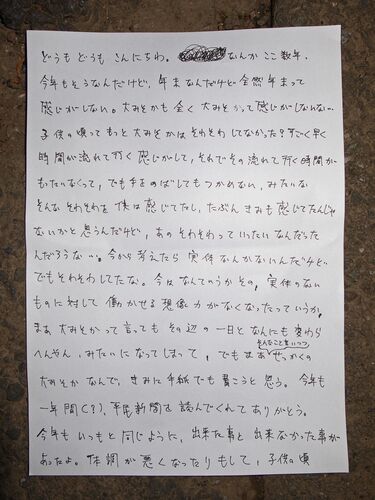 どうもどうも こんにちわ。なんか ここ 数年、
今年もそうなんだけど、年末なんだけど全然年末って
感じがしない。大みそかも全く大みそかって感じがしない…
子供の頃ってもっと大みそかはそわそわしてなかった？すごく早く
時間が流れて行く感じがして、それでその流れて行く時間が
もったいなくって、でも手をのばしてもつかめない、みたいな
そんなそわそわを僕は感じてたし、たぶんきみも感じてたんじゃ
ないかと思うんだけど、あのそわそわっていったいなんだった
んだろうな…。今から考えたら実体なんかないんだけど
でもそわそわしてたな。今はなんていうかその、実体のない
ものに対して働かせる想像力がなくなったっていうか、
まあ大みそかって言ってもその辺の一日となんにも変わら
へんやん、みたいになってしまって、でもまあそんなこといいつつせっかくの
大みそかなんで、きみに手紙でも書こうと思う。今年も
一年間(？)、平民新聞を読んでくれてありがとう。
今年もいつもと同じように、出来た事と出来なかった事が
あったよ。体調が悪くなったりもして、子供の頃